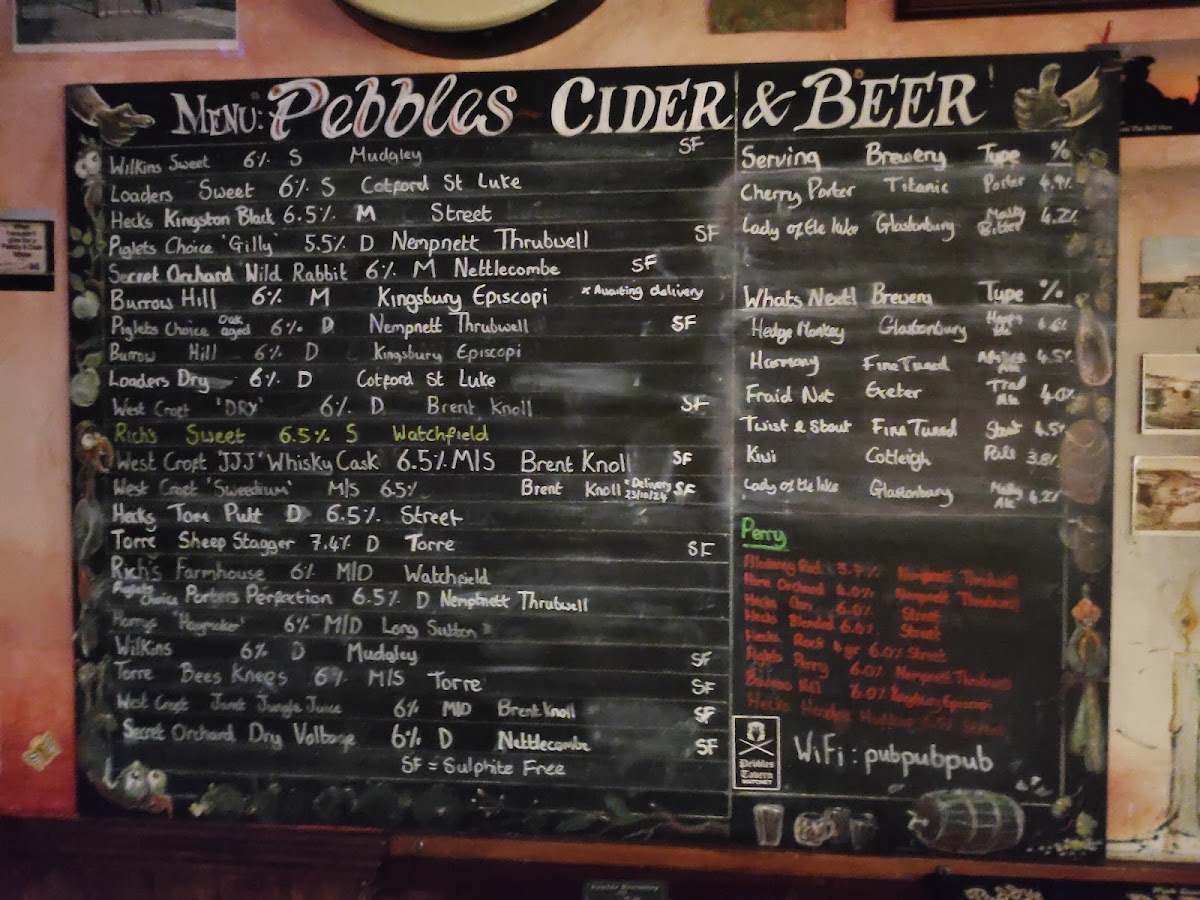 MENU: Pebbles CIDER & BEER
Wilkins Sweet 6% S Mudgley SF
Loaders Sweet 6% S Cotford St Luke
Hecks Kingston Black 6.5% M Street
Piglets Choice 'Gilly' 5.5% D Nempnett Thrubwell SF
Secret Orchard Wild Rabbit 6% M Nettlecombe SF
Burrow Hill 6% M Kingsbury Episcopi * Awaiting delivery
Piglets Choice Oak aged 6% D Nempnett Thrubwell SF
Burrow Hill 6% D Kingsbury Episcopi
Loaders Dry 6% D Cotford St Luke
West Croft 'DRY' 6% D Brent Knoll SF
Rich's Sweet 6.5% S Watchfield
West Croft 'JJJ' Whisky Cask 6.5% M/S Brent Knoll SF
West Croft 'Sweedium' M/S 6.5% Brent Knoll * Delivery 23/10/24 SF
Hecks Tom Putt D 6.5% Street
Torre Sheep Stagger 7.4% D Torre SF
Rich's Farmhouse 6% M/D Watchfield
Piglets Choice Porters Perfection 6.5% D Nempnett Thrubwell
Harrys 'Haymaker' 6% M/D Long Sutton
Wilkins 6% D Mudgley SF
Torre Bees Knees 6% M/S Torre SF
West Croft Janet Jungle Juice 6% M/D Brent Knoll SF
Secret Orchard Dry Voltage 6% D Nettlecombe SF
SF = Sulphite Free
Serving Brewery Type %
Cherry Porter Titanic Porter 4.9%
Lady of the lake Glastonbury Malty Bitter 4.2%
Whats Next! Brewery Type %
Hedge Monkey Glastonbury
Harmony Fine Tuned 4.5%
Fraid Not Exeter Trad Ale 4.0%
Twist & Stout Fine Tuned Stout 4.5%
Kiwi Cotleigh Pale 3.8%
Lady of the lake Glastonbury Malty Ale 4.2%
Perry
Red 3.7% Nempnett Thrubwell
Orchard 6.0% Nempnett Thrubwell
Hecks 6.0% Street
Hecks Blended 6.0% Street
Hecks Rock 6.0% Street
Piglets Perry 6.0% Nempnett Thrubwell
Burrow Hill 6.0% Kingsbury Episcopi
Hecks
Pebbles
Tavern
WATCHET
WiFi : pubpubpub